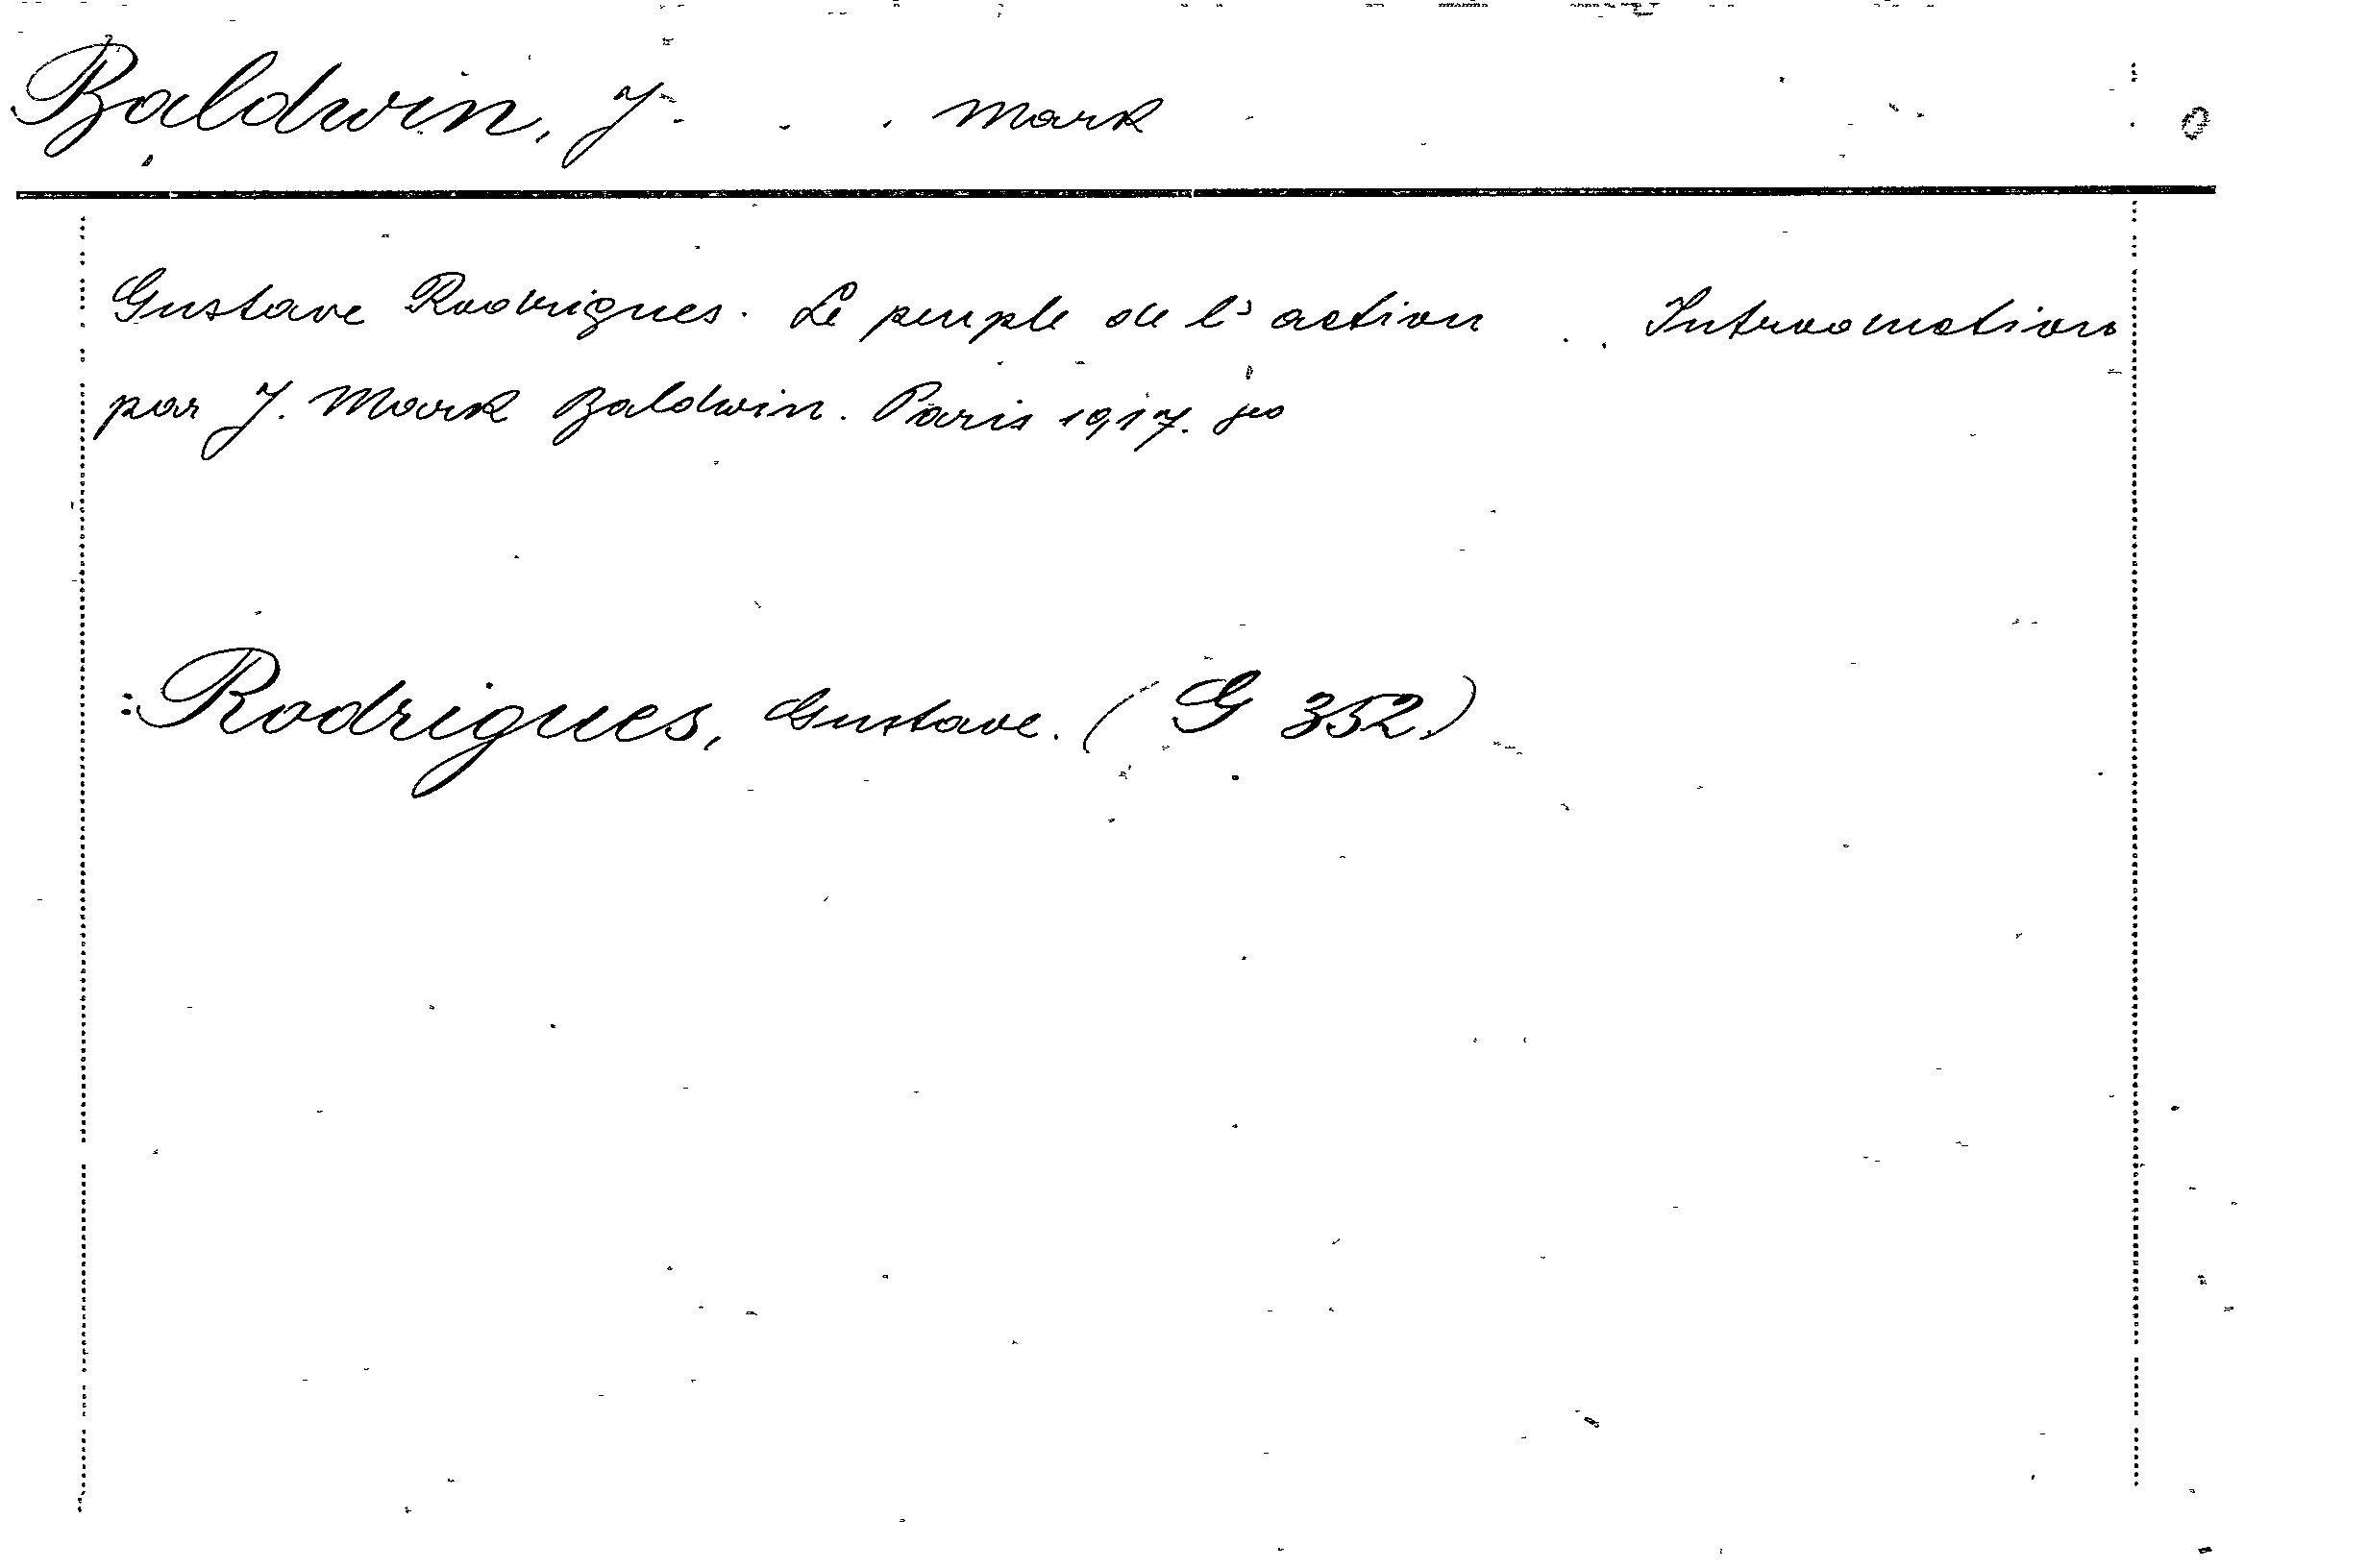 Baldwin, J. . . Mark
Gustave Rodrigues. Le peuple de l'action . . Introduction
par J. Mark Baldwin. Paris 1917. 8vo
: Rodrigues, Gustave. (G 352.)